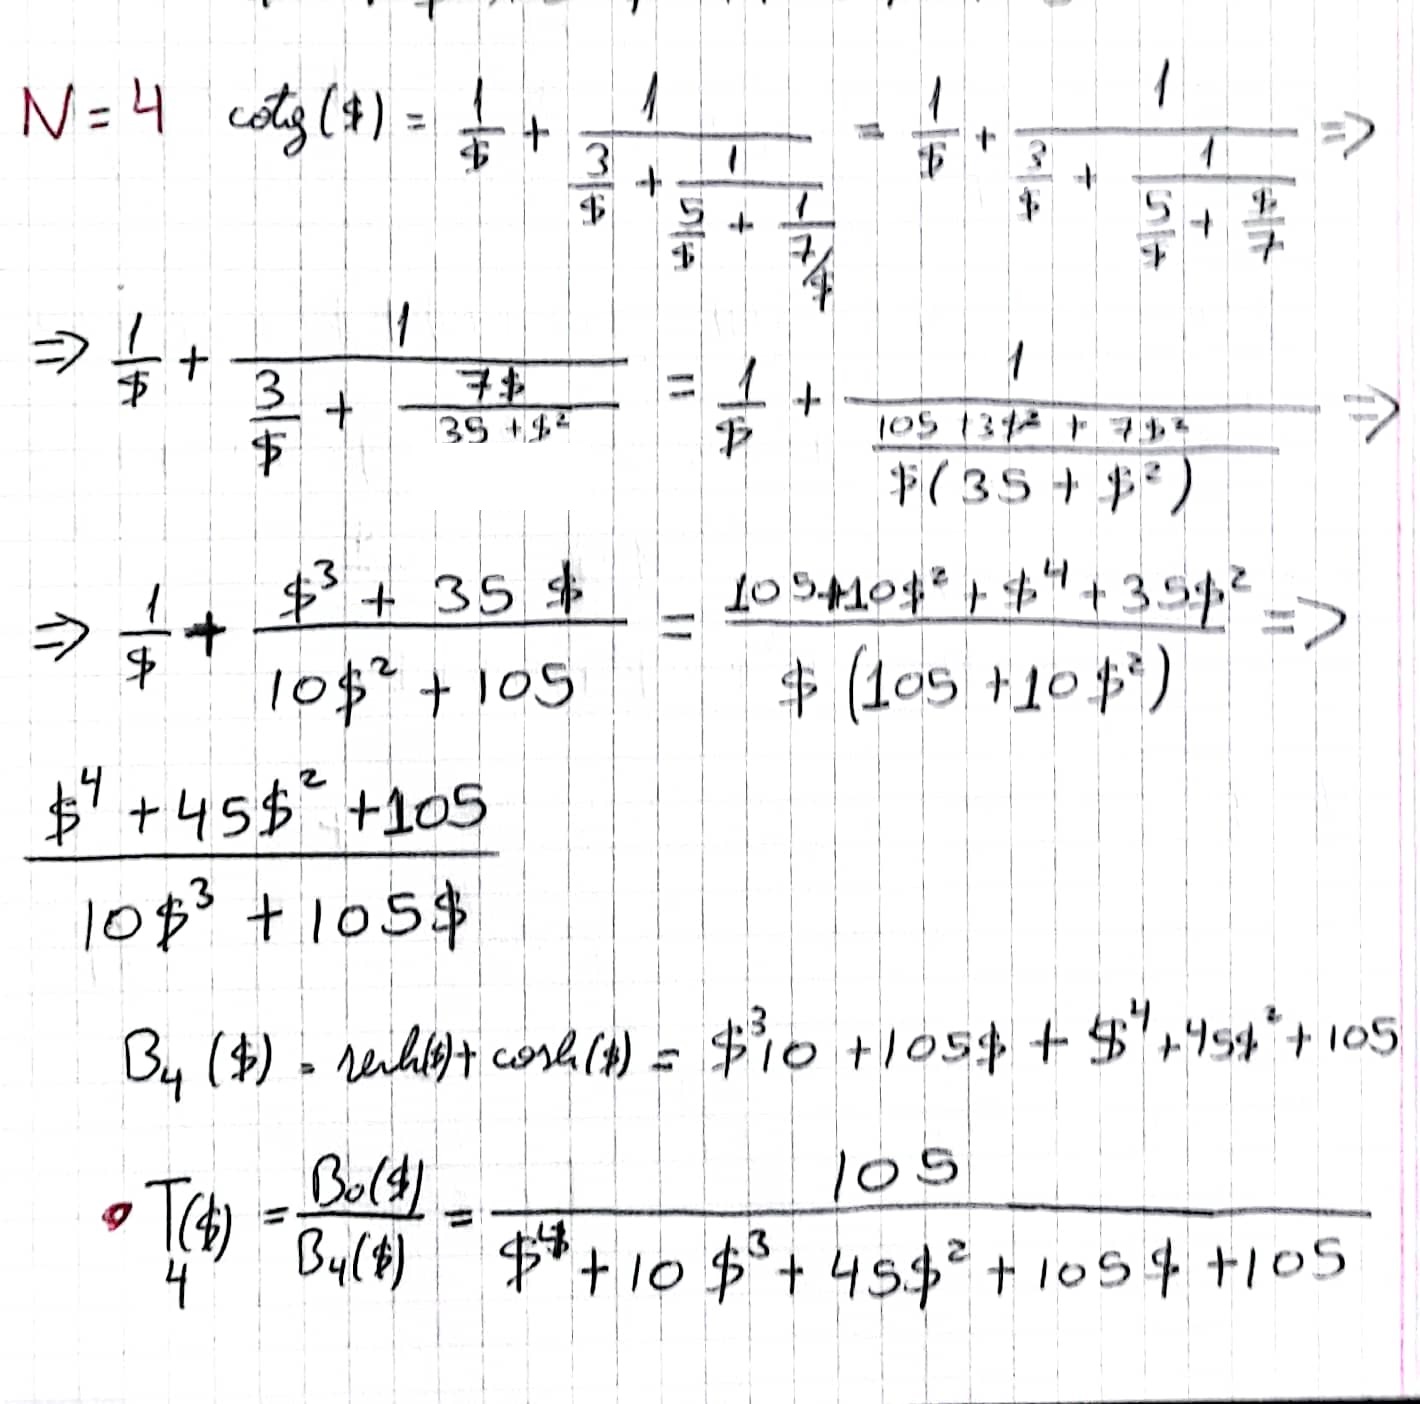 N=4 cotg($) = 1/$ + 1/(3/$ + 1/(5/$ + 1/(7/$))) = 1/$ + 1/(3/$ + 1/(5/$ + $/7)) =>
=> 1/$ + 1/(3/$ + 7$/(35+$²)) = 1/$ + 1/((105+3$²+7$²)/($(35+$²))) =>
=> 1/$ + ($³+35$)/(10$²+105) = (105+10$²+$⁴+35$²)/($(105+10$²)) =>
($⁴+45$²+105)/(10$³+105$)
B₄($) = senh($)+cosh($) = $³10+105$+$⁴+45$²+105
• T₄($) = B₀($)/B₄($) = 105/($⁴+10$³+45$²+105$+105)